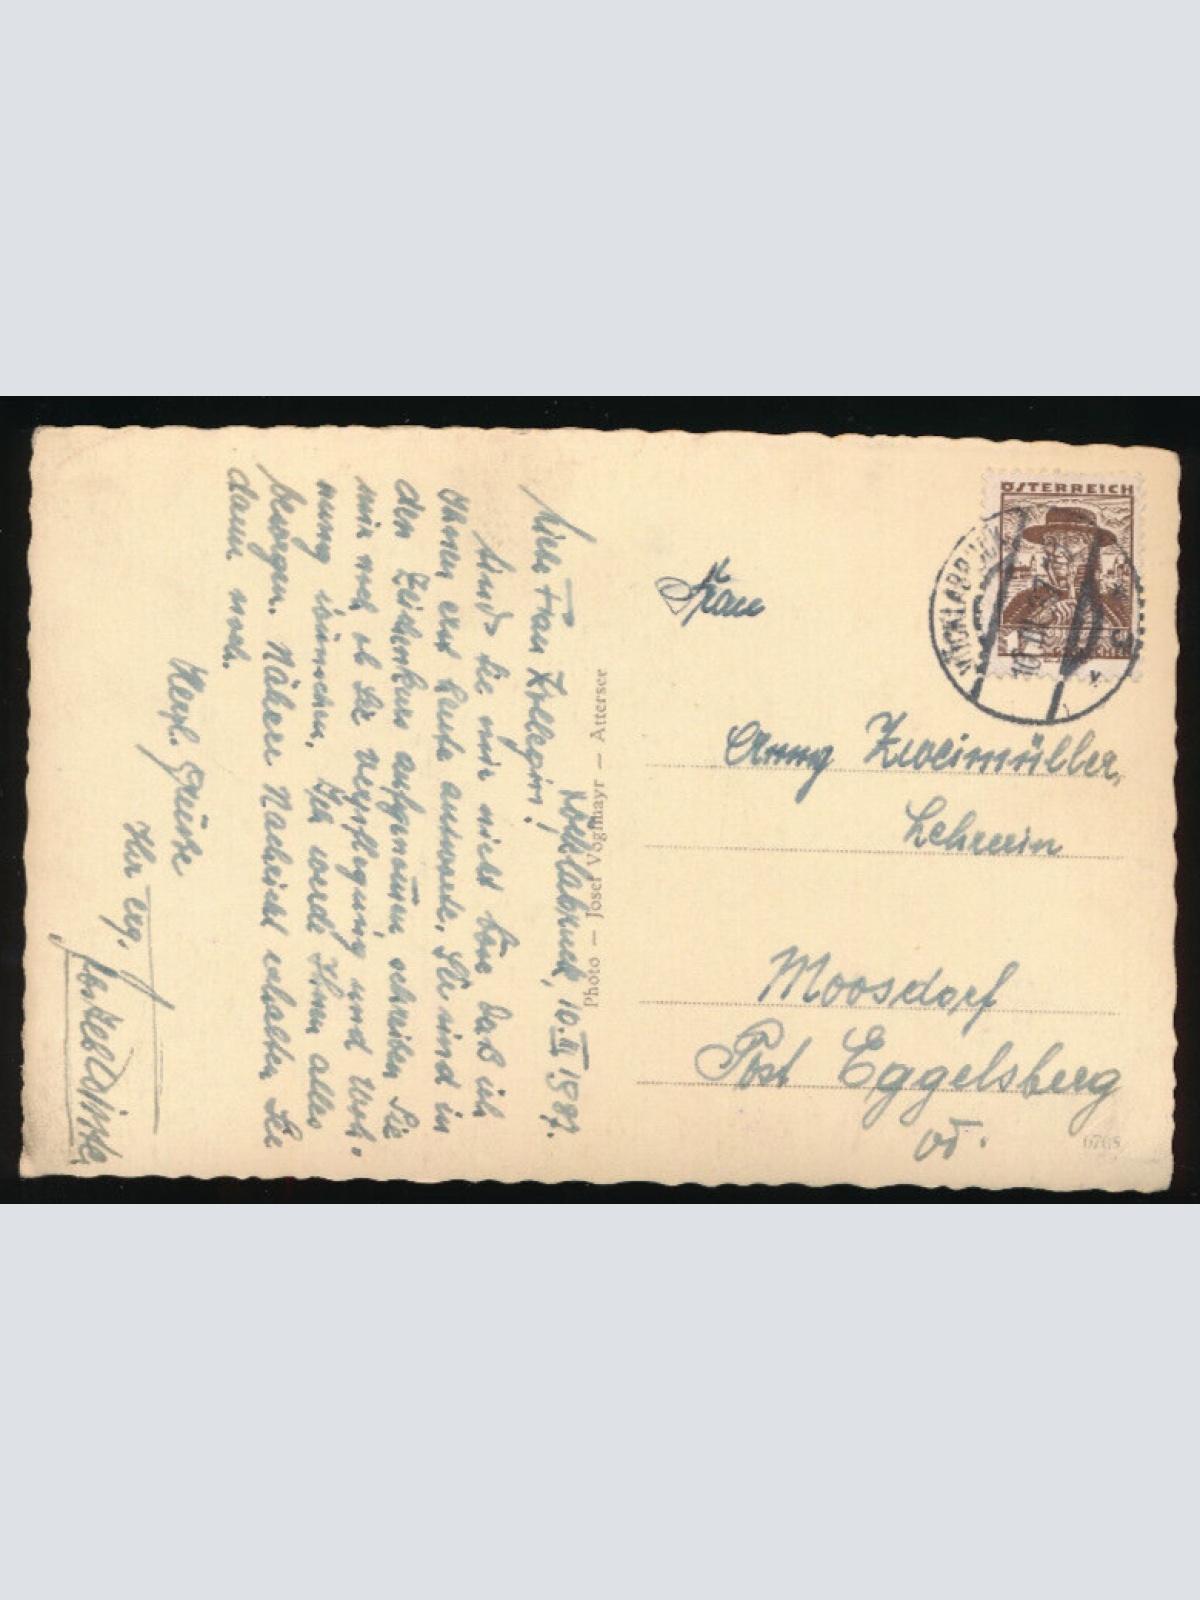 Vöcklabruck, 10. III 1937.
Liebe Frau Kollegin!
Sind Sie mir nicht böse daß ich
Ihnen erst heute antworte. Sie sind in
den Zeichenkurs aufgenommen, schreiben Sie
mir noch ob Sie Verpflegung und Woh-
nung wünschen. Ich werde Ihnen alles
besorgen. Nähere Nachricht erhalten Sie
dann noch.
Herzl. Grüße
Ihr erg.
Photo — Josef Voglmayr — Attersee
ÖSTERREICH
GROSCHEN
VÖCKLABRUCK
10. III. 37
Frau
Anny Zweimüller,
Lehrerin
Moosdorf
Post Eggelsberg
OÖ.
6768